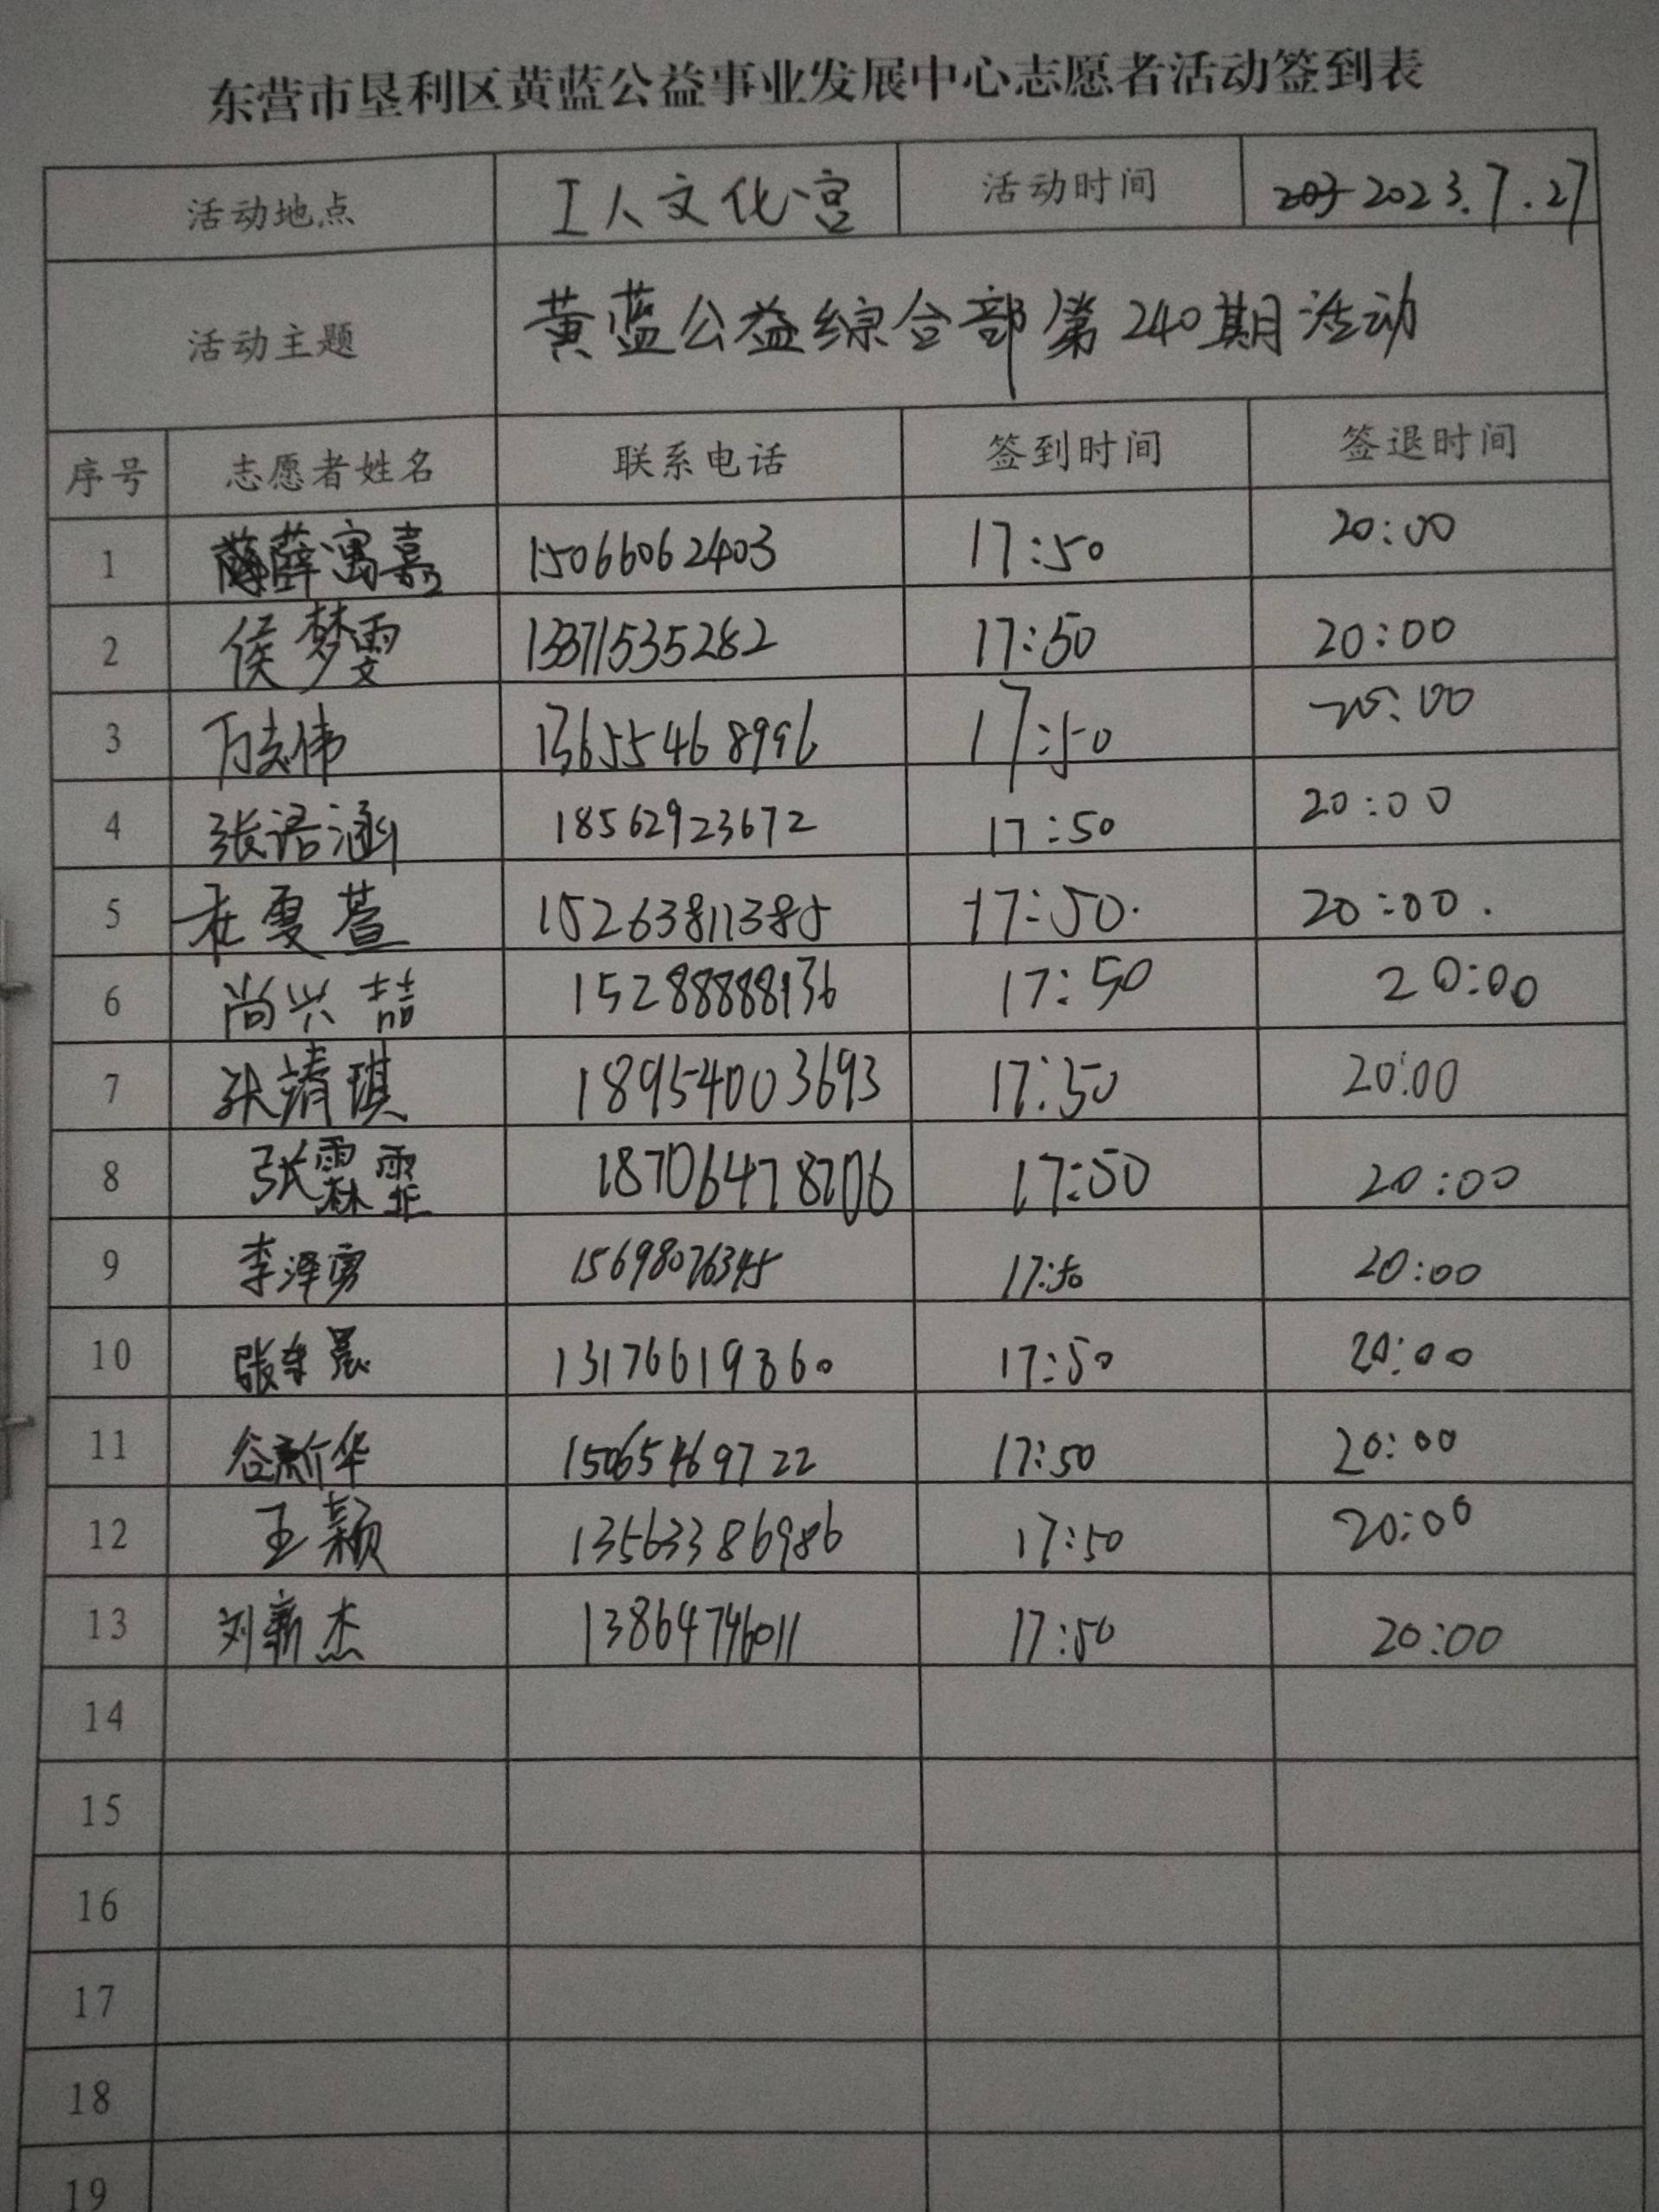 东营市垦利区黄蓝公益事业发展中心志愿者活动签到表
活动地点 工人文化宫 活动时间 2023.7.27
活动主题 黄蓝公益综合部第240期活动
序号 志愿者姓名 联系电话 签到时间 签退时间
1 薛寓嘉 15066062403 17:50 20:00
2 侯梦雯 13371535282 17:50 20:00
3 万志伟 13655468996 17:50 20:00
4 张语涵 18562923672 17:50 20:00
5 15263811385 17:50. 20:00.
6 尚兴喆 15288888136 17:50 20:00
7 张靖琪 18954003693 17:50 20:00
8 张霖霏 18706478706 17:50 20:00
9 李泽勇 15698076345 17:50 20:00
10 13176619360 17:50 20:00
11 谷新华 15065469722 17:50 20:00
12 王颖 13563386986 17:50 20:00
13 刘新杰 13864746011 17:50 20:00
14
15
16
17
18
19